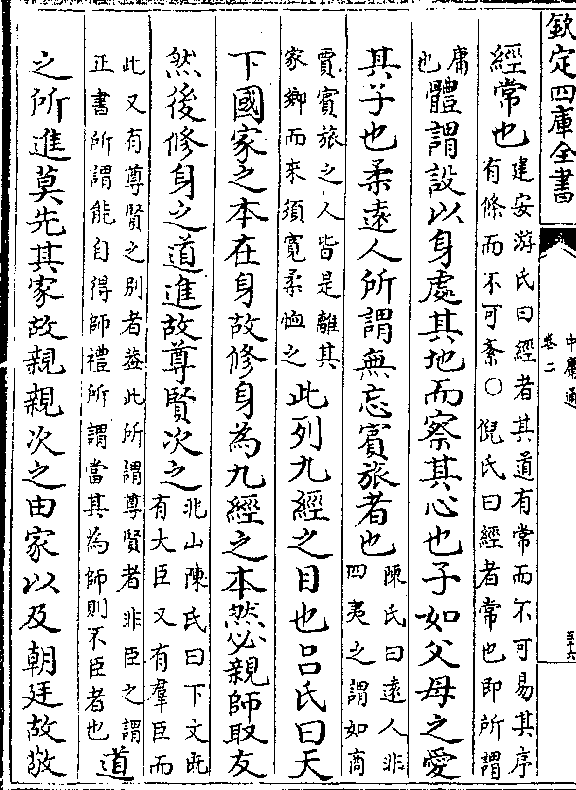 欽定四庫全書
中庸通
卷二
五十六
經常也建安游氏曰經者其道有常而不可易其序
有條而不可紊○倪氏曰經者常也即所謂
庸
也體謂設以身處其地而察其心也子如父母之愛
其子也柔遠人所謂無忘賓旅者也陳氏曰遠人非
四夷之謂如商
賈賓旅之人皆是離其
家鄉而來須寬柔恤之此列九經之目也吕氏曰天
下國家之本在身故修身為九經之本然必親師取友
然後修身之道進故尊賢次之北山陳氏曰下文既
有大臣又有羣臣而
此又有尊賢之别者葢此所謂尊賢者非臣之謂
正書所謂能自得師禮所謂當其為師則不臣者也道
之所進莫先其家故親親次之由家以及朝廷故敬